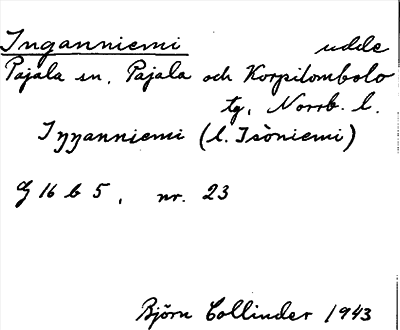 Inganniemi udde
Pajala sn, Pajala och Korpilombolo
tg, Norrb. l.
Iŋŋanniemi (l. Isòniemi)
G 16 b 5, nr. 23
Björn Collinder 1943